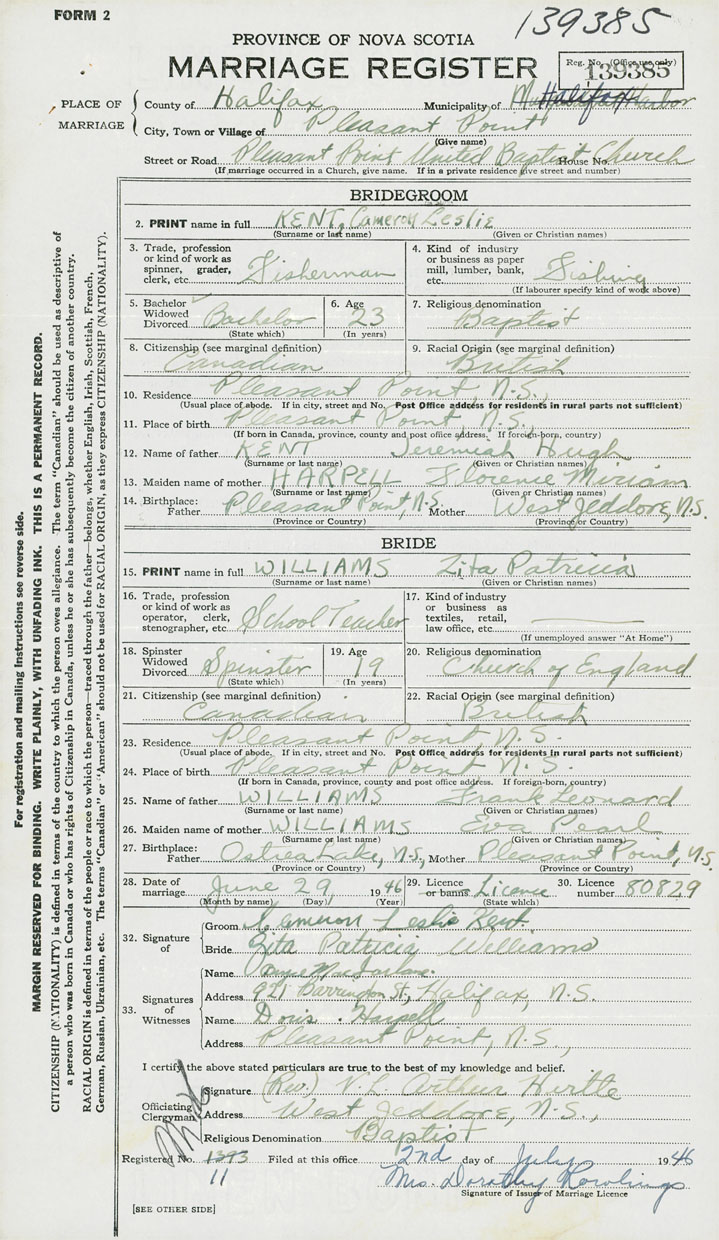 FORM 2
139385
PROVINCE OF NOVA SCOTIA
MARRIAGE REGISTER
Reg. No. (Office use only)
139385
PLACE OF MARRIAGE
County of Halifax Municipality of Halifax Harbor
City, Town or Village of Pleasant Point
(Give name)
Street or Road Pleasant Point United Baptist Church House No.
(If marriage occurred in a Church, give name. If in a private residence give street and number)
BRIDEGROOM
2. PRINT name in full KENT, Cameron Leslie
(Surname or last name) (Given or Christian names)
3. Trade, profession or kind of work as spinner, grader, clerk, etc. Fisherman
4. Kind of industry or business as paper mill, lumber, bank, etc. Fishing
(If labourer specify kind of work above)
5. Bachelor Widowed Divorced Bachelor
(State which)
6. Age 23
(In years)
7. Religious denomination
Baptist
8. Citizenship (see marginal definition)
Canadian
9. Racial Origin (see marginal definition)
British
10. Residence Pleasant Point, N.S.,
(Usual place of abode. If in city, street and No. Post Office address for residents in rural parts not sufficient)
11. Place of birth Pleasant Point, N.S.,
(If born in Canada, province, county and post office address. If foreign-born, country)
12. Name of father KENT Jeremiah Hugh
(Surname or last name) (Given or Christian names)
13. Maiden name of mother HARPELL Florence Miriam
(Surname or last name) (Given or Christian names)
14. Birthplace: Father Pleasant Point, N.S. Mother West Jeddore, N.S.
(Province or Country) (Province or Country)
BRIDE
15. PRINT name in full WILLIAMS Zita Patricia
(Surname or last name) (Given or Christian names)
16. Trade, profession or kind of work as operator, clerk, stenographer, etc. School Teacher
17. Kind of industry or business as textiles, retail, law office, etc.
(If unemployed answer "At Home")
18. Spinster Widowed Divorced Spinster
(State which)
19. Age 19
(In years)
20. Religious denomination
Church of England
21. Citizenship (see marginal definition)
Canadian
22. Racial Origin (see marginal definition)
British
23. Residence Pleasant Point, N.S.
(Usual place of abode. If in city, street and No. Post Office address for residents in rural parts not sufficient)
24. Place of birth Pleasant Point, N.S.
(If born in Canada, province, county and post office address. If foreign-born, country)
25. Name of father WILLIAMS Frank Leonard
(Surname or last name) (Given or Christian names)
26. Maiden name of mother WILLIAMS Eva Pearl
(Surname or last name) (Given or Christian names)
27. Birthplace: Father Ostrea Lake, N.S., Mother Pleasant Point, N.S.
(Province or Country) (Province or Country)
28. Date of marriage June 29 1946
(Month by name) (Day) (Year)
29. Licence or banns Licence
(State which)
30. Licence number 80829
32. Signature of
Groom Cameron Leslie Kent.
Bride Zita Patricia Williams
33. Signatures of Witnesses
Name MacFarlane.
Address 921 Barrington St., Halifax, N.S.
Name Doris Harpell
Address Pleasant Point, N.S.,
I certify the above stated particulars are true to the best of my knowledge and belief.
Officiating Clergyman
Signature (Rev.) Arthur Hirtle
Address West Jeddore, N.S.,
Religious Denomination Baptist
Registered No. 1393 Filed at this office 2nd day of July 1946
11
Mrs. Dorothy Rowlings
Signature of Issuer of Marriage Licence
[SEE OTHER SIDE]
For registration and mailing instructions see reverse side.
MARGIN RESERVED FOR BINDING. WRITE PLAINLY, WITH UNFADING INK. THIS IS A PERMANENT RECORD.
CITIZENSHIP (NATIONALITY) is defined in terms of the country to which the person owes allegiance. The term "Canadian" should be used as descriptive of
a person who was born in Canada or who has rights of Citizenship in Canada, unless he or she has subsequently become the citizen of another country.
RACIAL ORIGIN is defined in terms of the people or race to which the person—traced through the father—belongs, whether English, Irish, Scottish, French,
German, Russian, Ukrainian, etc. The terms "Canadian" or "American" should not be used for RACIAL ORIGIN, as they express CITIZENSHIP (NATIONALITY).